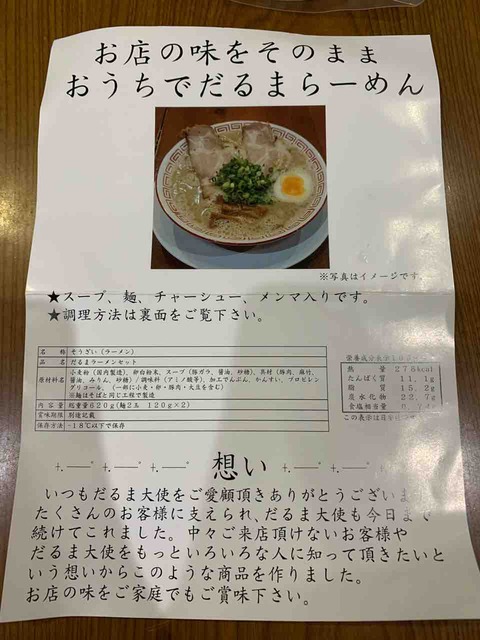 お店の味をそのまま
おうちでだるまらーめん
※写真はイメージです。
★スープ、麺、チャーシュー、メンマ入りです。
★調理方法は裏面をご覧下さい。
名 称 そうざい(ラーメン)
品 名 だるまラーメンセット
原材料名 小麦粉(国内製造)、卵白粉末、スープ(豚ガラ、醤油、砂糖)、具材(豚肉、麻竹、
醤油、みりん、砂糖)/調味料(アミノ酸等)、加工でんぷん、かんすい、プロピレン
グリコール、(一部に小麦・卵・豚肉・大豆を含む)
※麺はそばと同じ工程で製造
内 容 量 総重量620g(麺2玉 120g×2)
賞味期限 別途記載
保存方法 -18℃以下で保存
栄養成分表示
熱 量 278kcal
たんぱく質 11.1g
脂 質 15.2g
炭水化物 22.7g
食塩相当量
この表示は
想い
いつもだるま大使をご愛顧頂きありがとうございま
たくさんのお客様に支えられ、だるま大使も今日まで
続けてこれました。中々ご来店頂けないお客様や
だるま大使をもっといろいろな人に知って頂きたいと
いう想いからこのような商品を作りました。
お店の味をご家庭でもご賞味下さい。